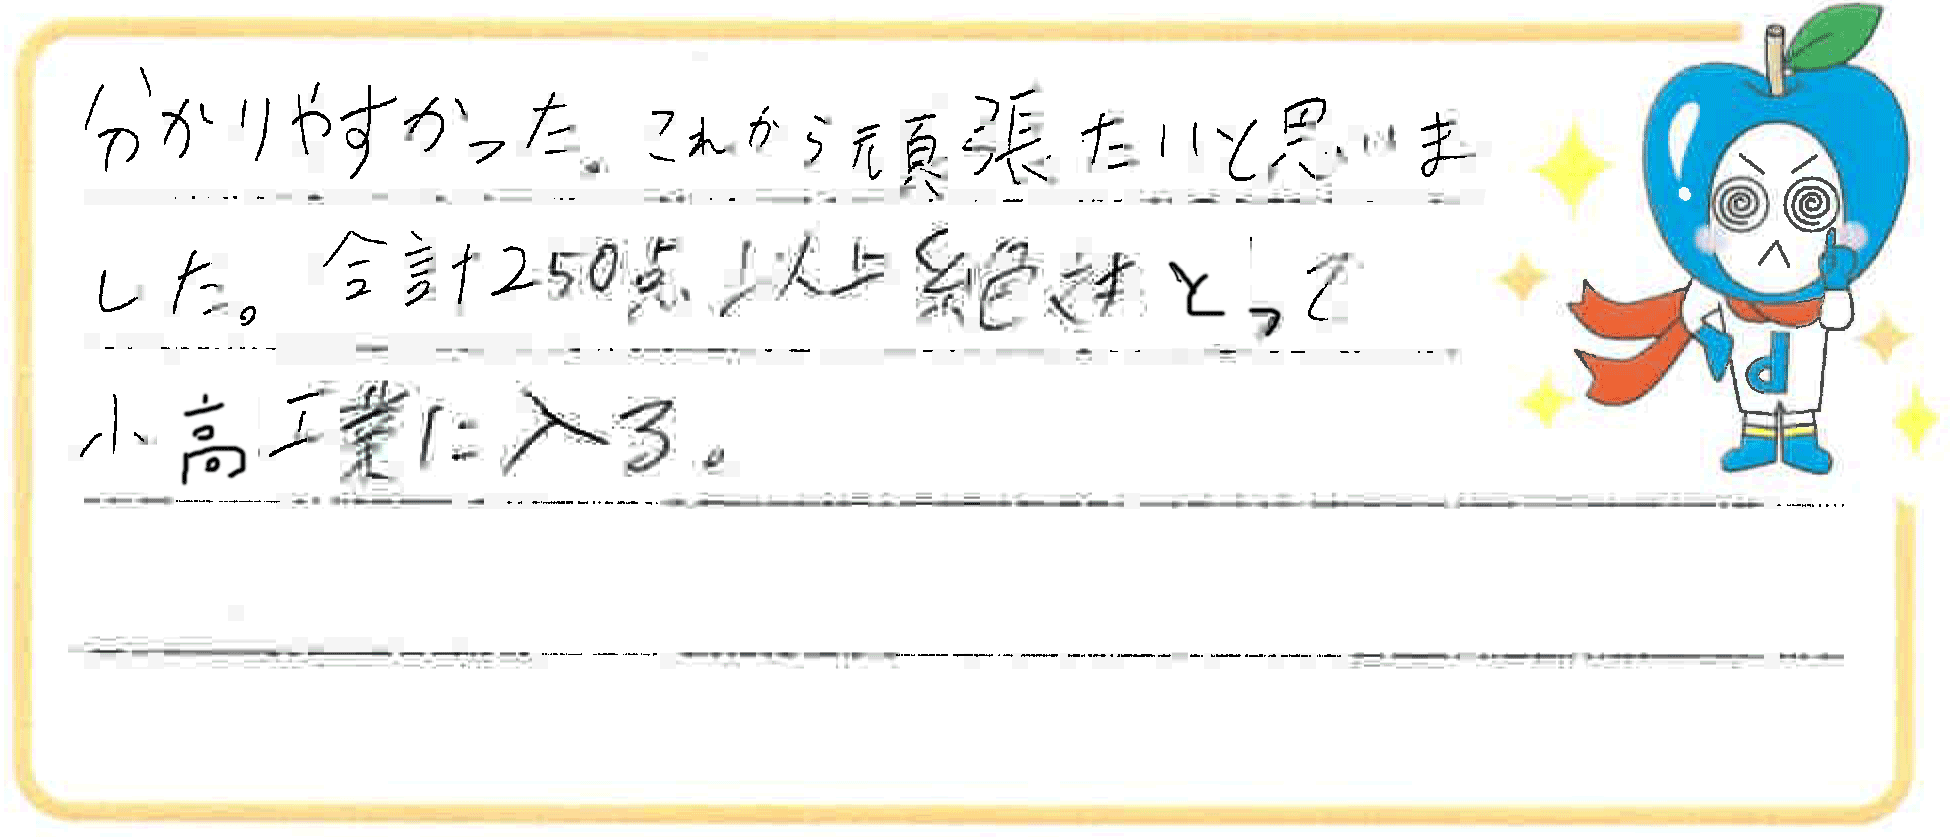 分かりやすかった。これから頑張たいと思いま
した。合計250点以上絶対とって
小高工業に入る。
d